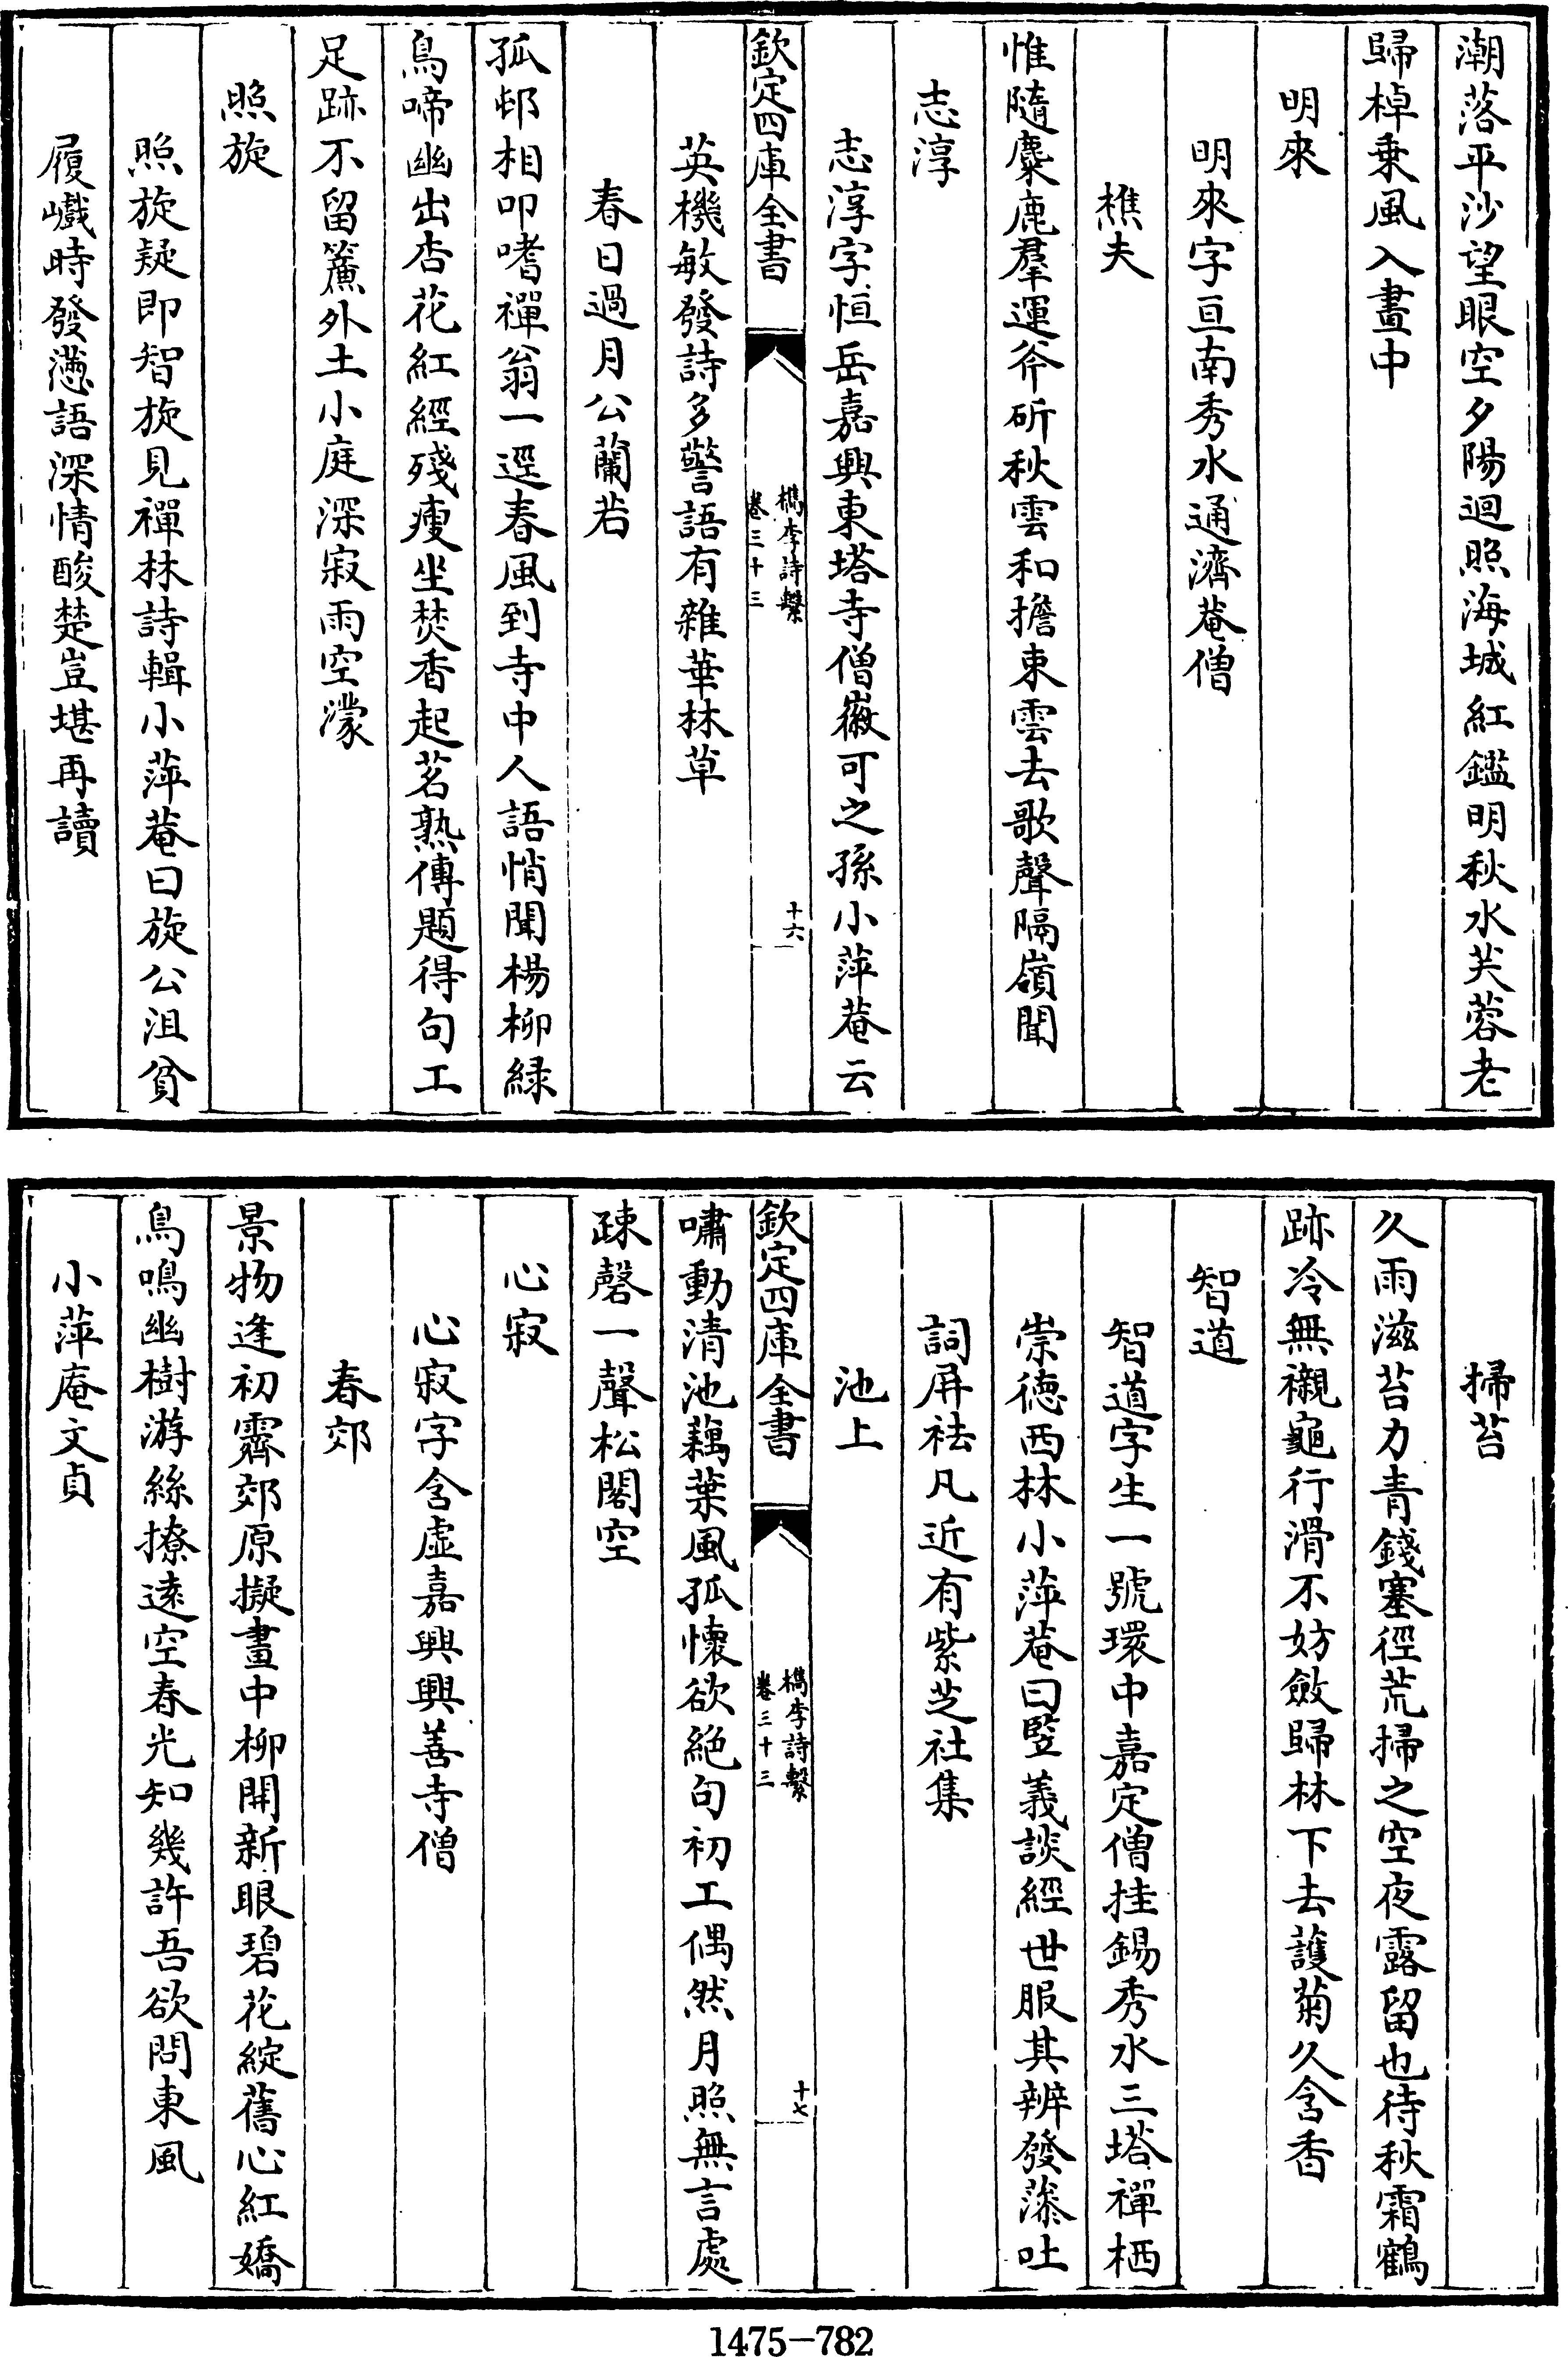 潮落平沙望眼空夕陽迴照海城紅鑑明秋水芙蓉老
歸棹乗風入畫中
明來
明來字亘南秀水通濟菴僧
樵夫
惟隨麋鹿羣運斧斫秋雲和擔束雲去歌聲隔嶺聞
志淳
志淳字恒岳嘉興東塔寺僧薇可之孫小萍菴云
欽定四庫全書
檇李詩繫
卷三十三
十六
英機敏發詩多警語有雜華林草
春日過月公蘭若
孤邨相叩嗜禪翁一逕春風到寺中人語悄聞楊柳緑
鳥啼幽出杏花紅經殘瘦坐焚香起茗熟傳題得句工
足跡不留簾外土小庭深寂雨空濛
照旋
照旋疑即智旋見禪林詩輯小萍菴曰旋公沮貧
履巇時發懣語深情酸楚豈堪再讀
掃苔
久雨滋苔力青錢塞徑荒掃之空夜露留也待秋霜鶴
跡冷無襯龜行滑不妨斂歸林下去護菊久含香
智道
智道字生一號環中嘉定僧挂錫秀水三塔禪栖
崇德西林小萍菴曰竪義談經世服其辨發藻吐
詞屏祛凡近有紫芝社集
池上
欽定四庫全書
檇李詩繫
卷三十三
十七
嘯動清池藕葉風孤懷欲絶句初工偶然月照無言處
疎磬一聲松閣空
心寂
心寂字含虛嘉興興善寺僧
春郊
景物逢初霽郊原擬畫中柳開新眼碧花綻舊心紅嬌
鳥鳴幽樹游絲撩遠空春光知幾許吾欲問東風
小萍庵文貞
1475-782